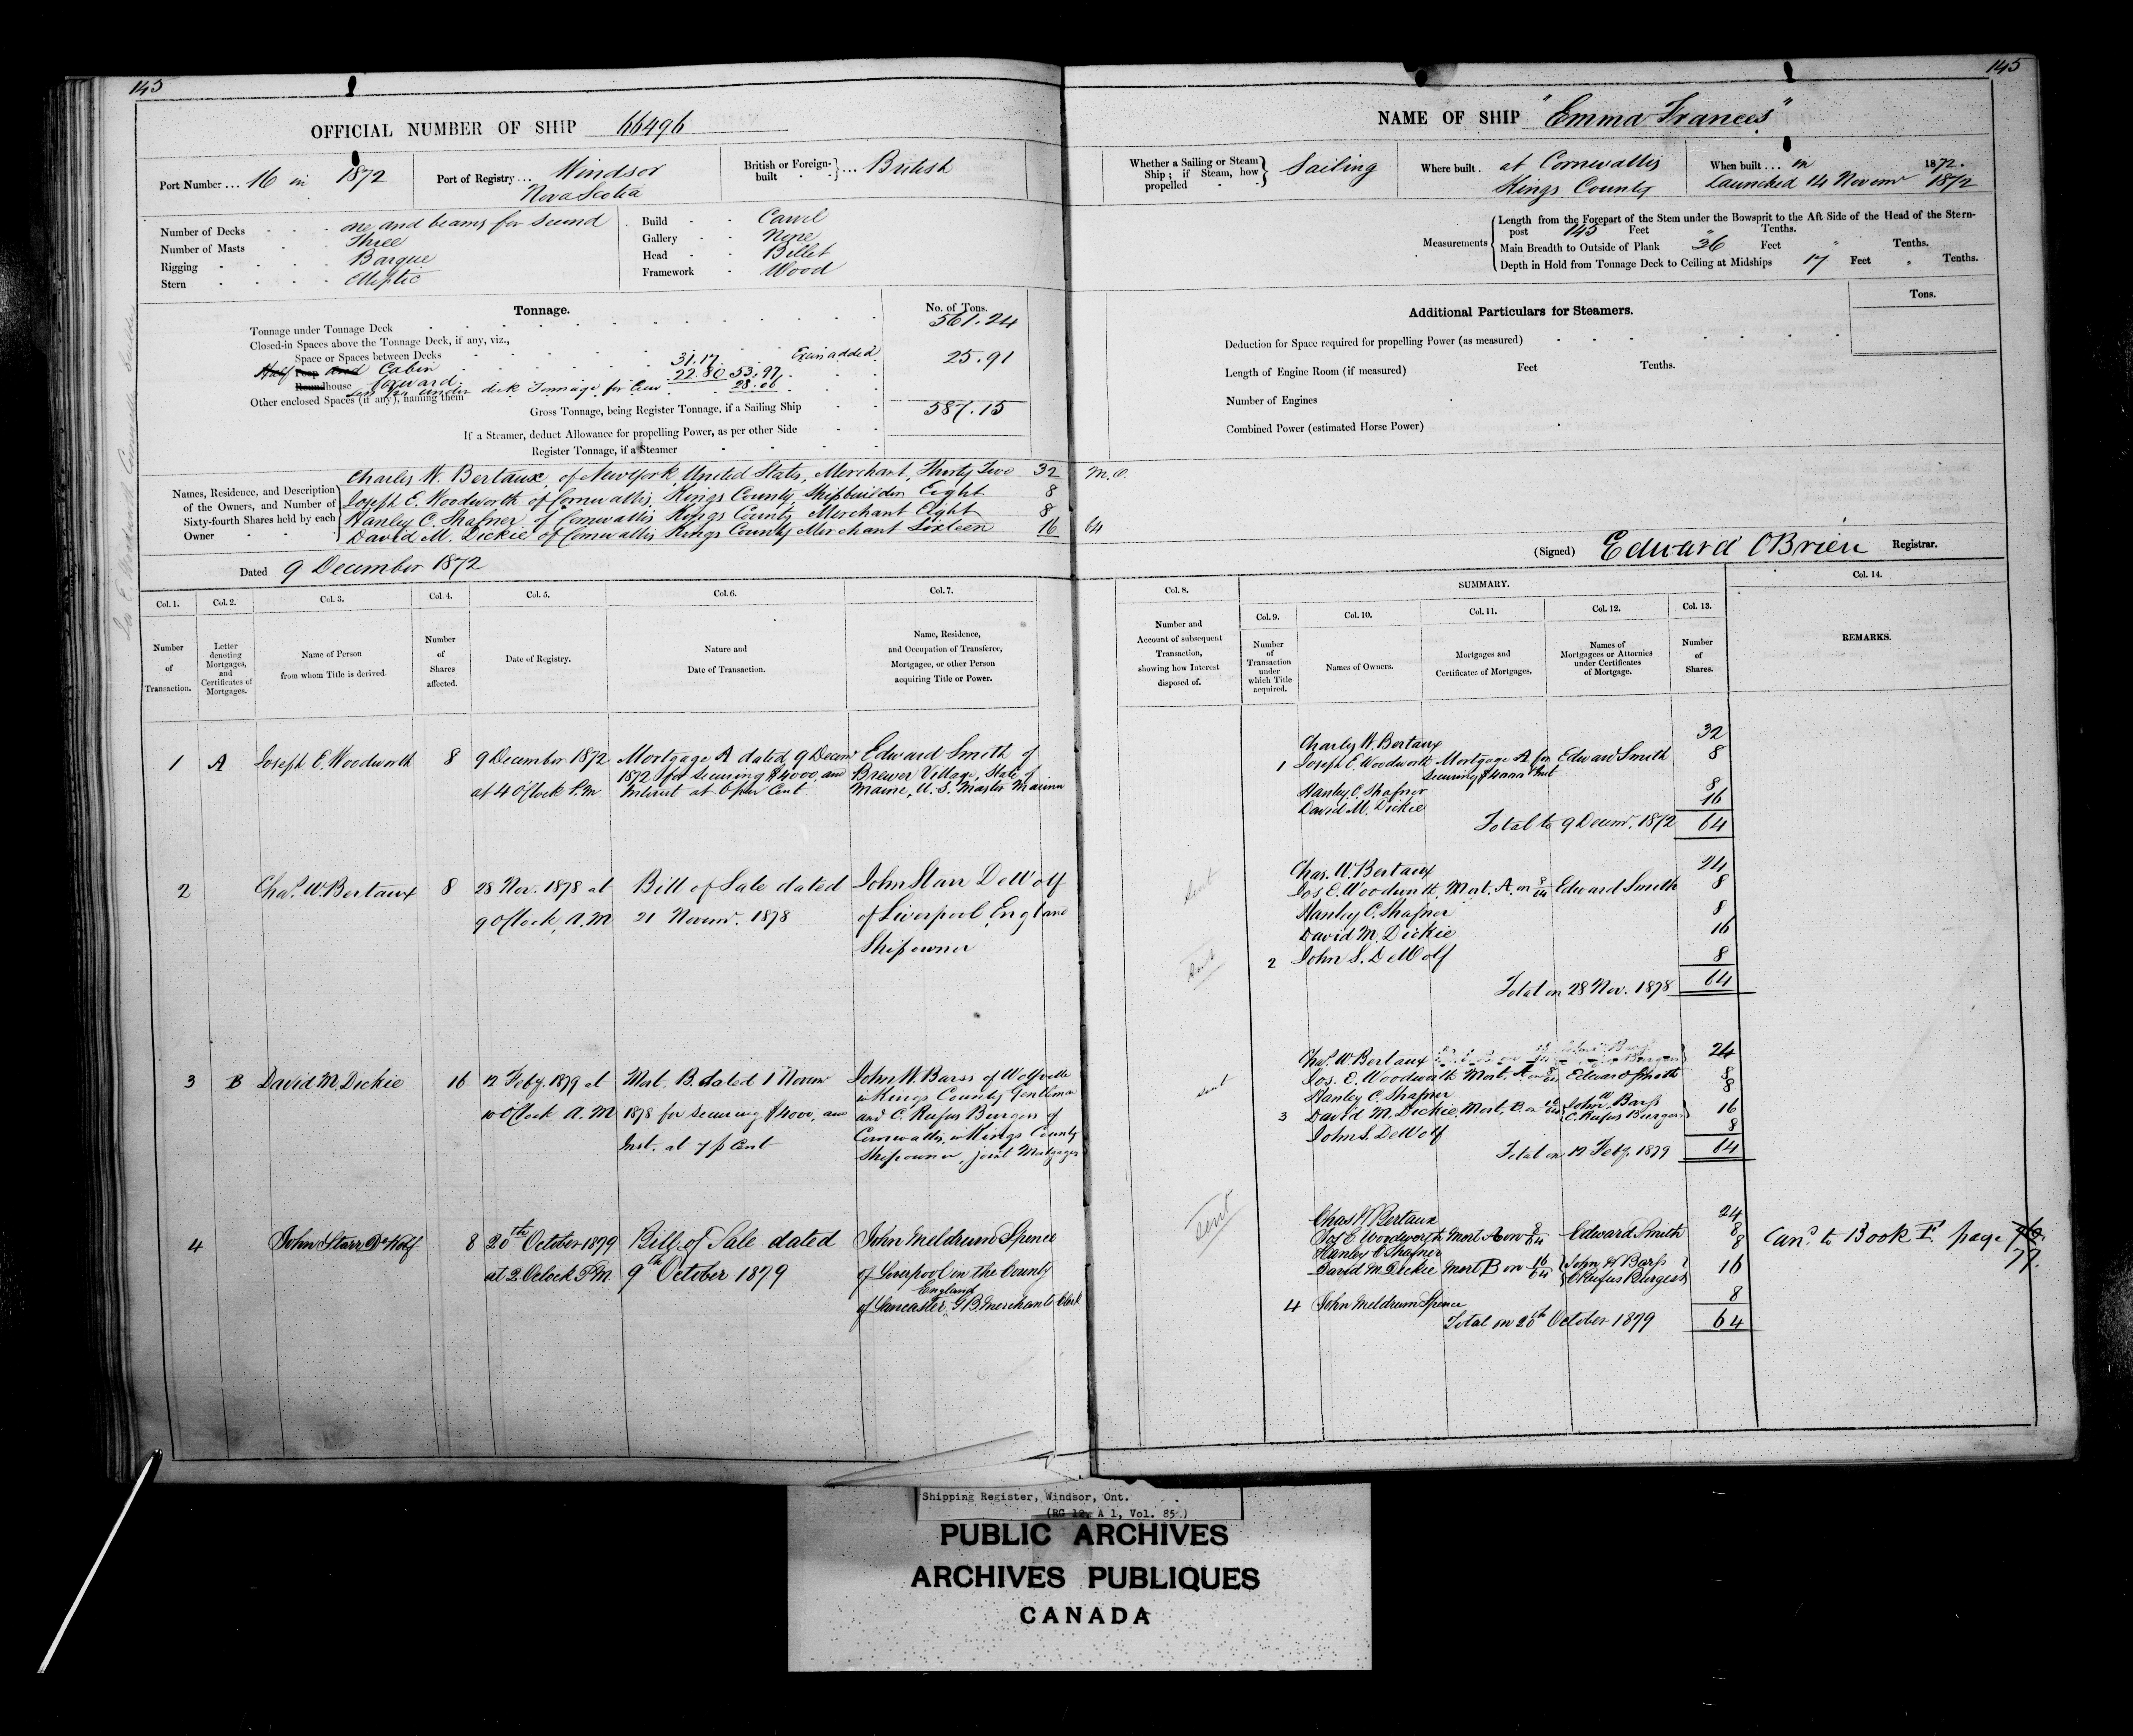 145
OFFICIAL NUMBER OF SHIP 66496
Port Number ... 16 in 1872
Port of Registry ... Windsor
Nova Scotia
British or Foreign-built ... British
Number of Decks one and beams for second
Number of Masts Three
Rigging Barque
Stern Elliptic
Build Carvel
Gallery None
Head Billet
Framework Wood
Tonnage.
No. of Tons.
Tonnage under Tonnage Deck 561.24
Closed-in Spaces above the Tonnage Deck, if any, viz.,
Space or Spaces between Decks
Half Poop and Cabin 31.17
Roundhouse forward 22.80 53.97 25.91
Other enclosed Spaces (if any), naming them
under deck Tonnage for Crew 28.06
Gross Tonnage, being Register Tonnage, if a Sailing Ship 587.15
If a Steamer, deduct Allowance for propelling Power, as per other Side
Register Tonnage, if a Steamer
Names, Residence, and Description of the Owners, and Number of Sixty-fourth Shares held by each Owner
Charles W. Bertaux, of New York, United States, Merchant, Thirty Two 32
Joseph E. Woodworth of Cornwallis, Kings County, Shipbuilder Eight 8
Stanley C. Shafner of Cornwallis Kings County Merchant Eight 8
David M. Dickie of Cornwallis Kings County Merchant Sixteen 16
Dated 9 December 1872
Col. 1. Col. 2. Col. 3. Col. 4. Col. 5. Col. 6. Col. 7.
Number of Transaction.
Letter denoting Mortgages, and Certificates of Mortgages.
Name of Person from whom Title is derived.
Number of Shares affected.
Date of Registry.
Nature and Date of Transaction.
Name, Residence, and Occupation of Transferee, Mortgagee, or other Person acquiring Title or Power.
1 A Joseph E. Woodworth 8 9 December 1872 Mortgage A dated 9 Decemr Edward Smith of
1872 for securing $4000, and Brewer Village, State of
at 4 O'Clock P.M Interest at 6 per Cent Maine, U.S. Master Mariner
2 Chas. W. Bertaux 8 28 Nov. 1878 at Bill of Sale dated John Starr DeWolf
9 O'Clock, A.M 21 Novemr. 1878 of Liverpool, England
Shipowner
3 B David M. Dickie 16 12 Feby. 1879 at Mort. B. dated 1 Novemr John W. Barss of Wolfville
in Kings County Gentleman
10 O'Clock A.M 1878 for securing $4000, and and C. Rufus Burgess of
Cornwallis, in Kings County
Inst. at 7 p Cent Shipowner, joint Mortgagees
4 John Starr DeWolf 8 20th October 1879 Bill of Sale dated John Meldrum Spence
at 2 Oclock P.M. 9th October 1879 of Liverpool in the County
England
of Lancaster, G.B. Merchants Clerk
145
NAME OF SHIP "Emma Frances"
Whether a Sailing or Steam Ship; if Steam, how propelled Sailing
Where built. at Cornwallis
Kings County
When built ... in 1872.
Launched 14 Novemr 1872
Measurements
Length from the Forepart of the Stem under the Bowsprit to the Aft Side of the Head of the Stern-
post 145 Feet " Tenths.
Main Breadth to Outside of Plank 36 Feet " Tenths.
Depth in Hold from Tonnage Deck to Ceiling at Midships 17 Feet " Tenths.
Additional Particulars for Steamers.
Tons.
Deduction for Space required for propelling Power (as measured)
Length of Engine Room (if measured) Feet Tenths.
Number of Engines
Combined Power (estimated Horse Power)
64
(Signed) Edward O'Brien Registrar.
Col. 8. SUMMARY. Col. 14.
Col. 9. Col. 10. Col. 11. Col. 12. Col. 13.
Number and Account of subsequent Transaction, showing how Interest disposed of.
Number of Transaction under which Title acquired.
Names of Owners.
Mortgages and Certificates of Mortgages.
Names of Mortgagees or Attornies under Certificates of Mortgage.
Number of Shares.
REMARKS.
Charles W. Bertaux 32
1 Joseph E. Woodworth Mortgage A for Edward Smith 8
securing $4000 & Inst
Stanley C. Shafner 8
David M. Dickie 16
Total to 9 Decemr. 1872 64
sent
Chas. W. Bertaux 24
Jos E. Woodworth, Mort. A. on 8/64 Edward Smith 8
Stanley C. Shafner 8
David M. Dickie 16
sent
2 John S. DeWolf 8
Total on 28 Nov. 1878 64
Chas. W. Bertaux 24
sent
Jos. E. Woodworth Mort. A on 8/64 Edward Smith 8
Stanley C. Shafner 8
3 David M. Dickie, Mort. B. on 16/64 John W. Barss
C. Rufus Burgess 16
John S. DeWolf 8
Total on 12 Feby. 1879 64
sent
Chas W Bertaux 24
Jos E Woodworth Mort A on 8/64 Edward Smith 8
Stanley C Shafner 8
David M Dickie Mort B on 16/64 John W Barss
C Rufus Burgess 16
4 John Meldrum Spence 8
Total on 20th October 1879 64
Cand. to Book F. page
77.
Shipping Register, Windsor, Ont.
(RG 12, A 1, Vol. 85)
PUBLIC ARCHIVES
ARCHIVES PUBLIQUES
CANADA